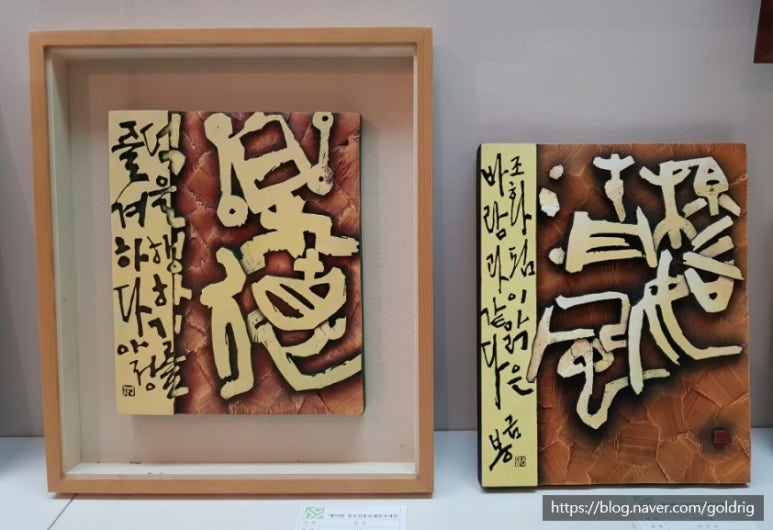 樂德
덕을 행하기를
즐겨하다
아정
穆如
淸風
조화됨이 맑은
바람과 같다
금봉
https://blog.naver.com/goldrig